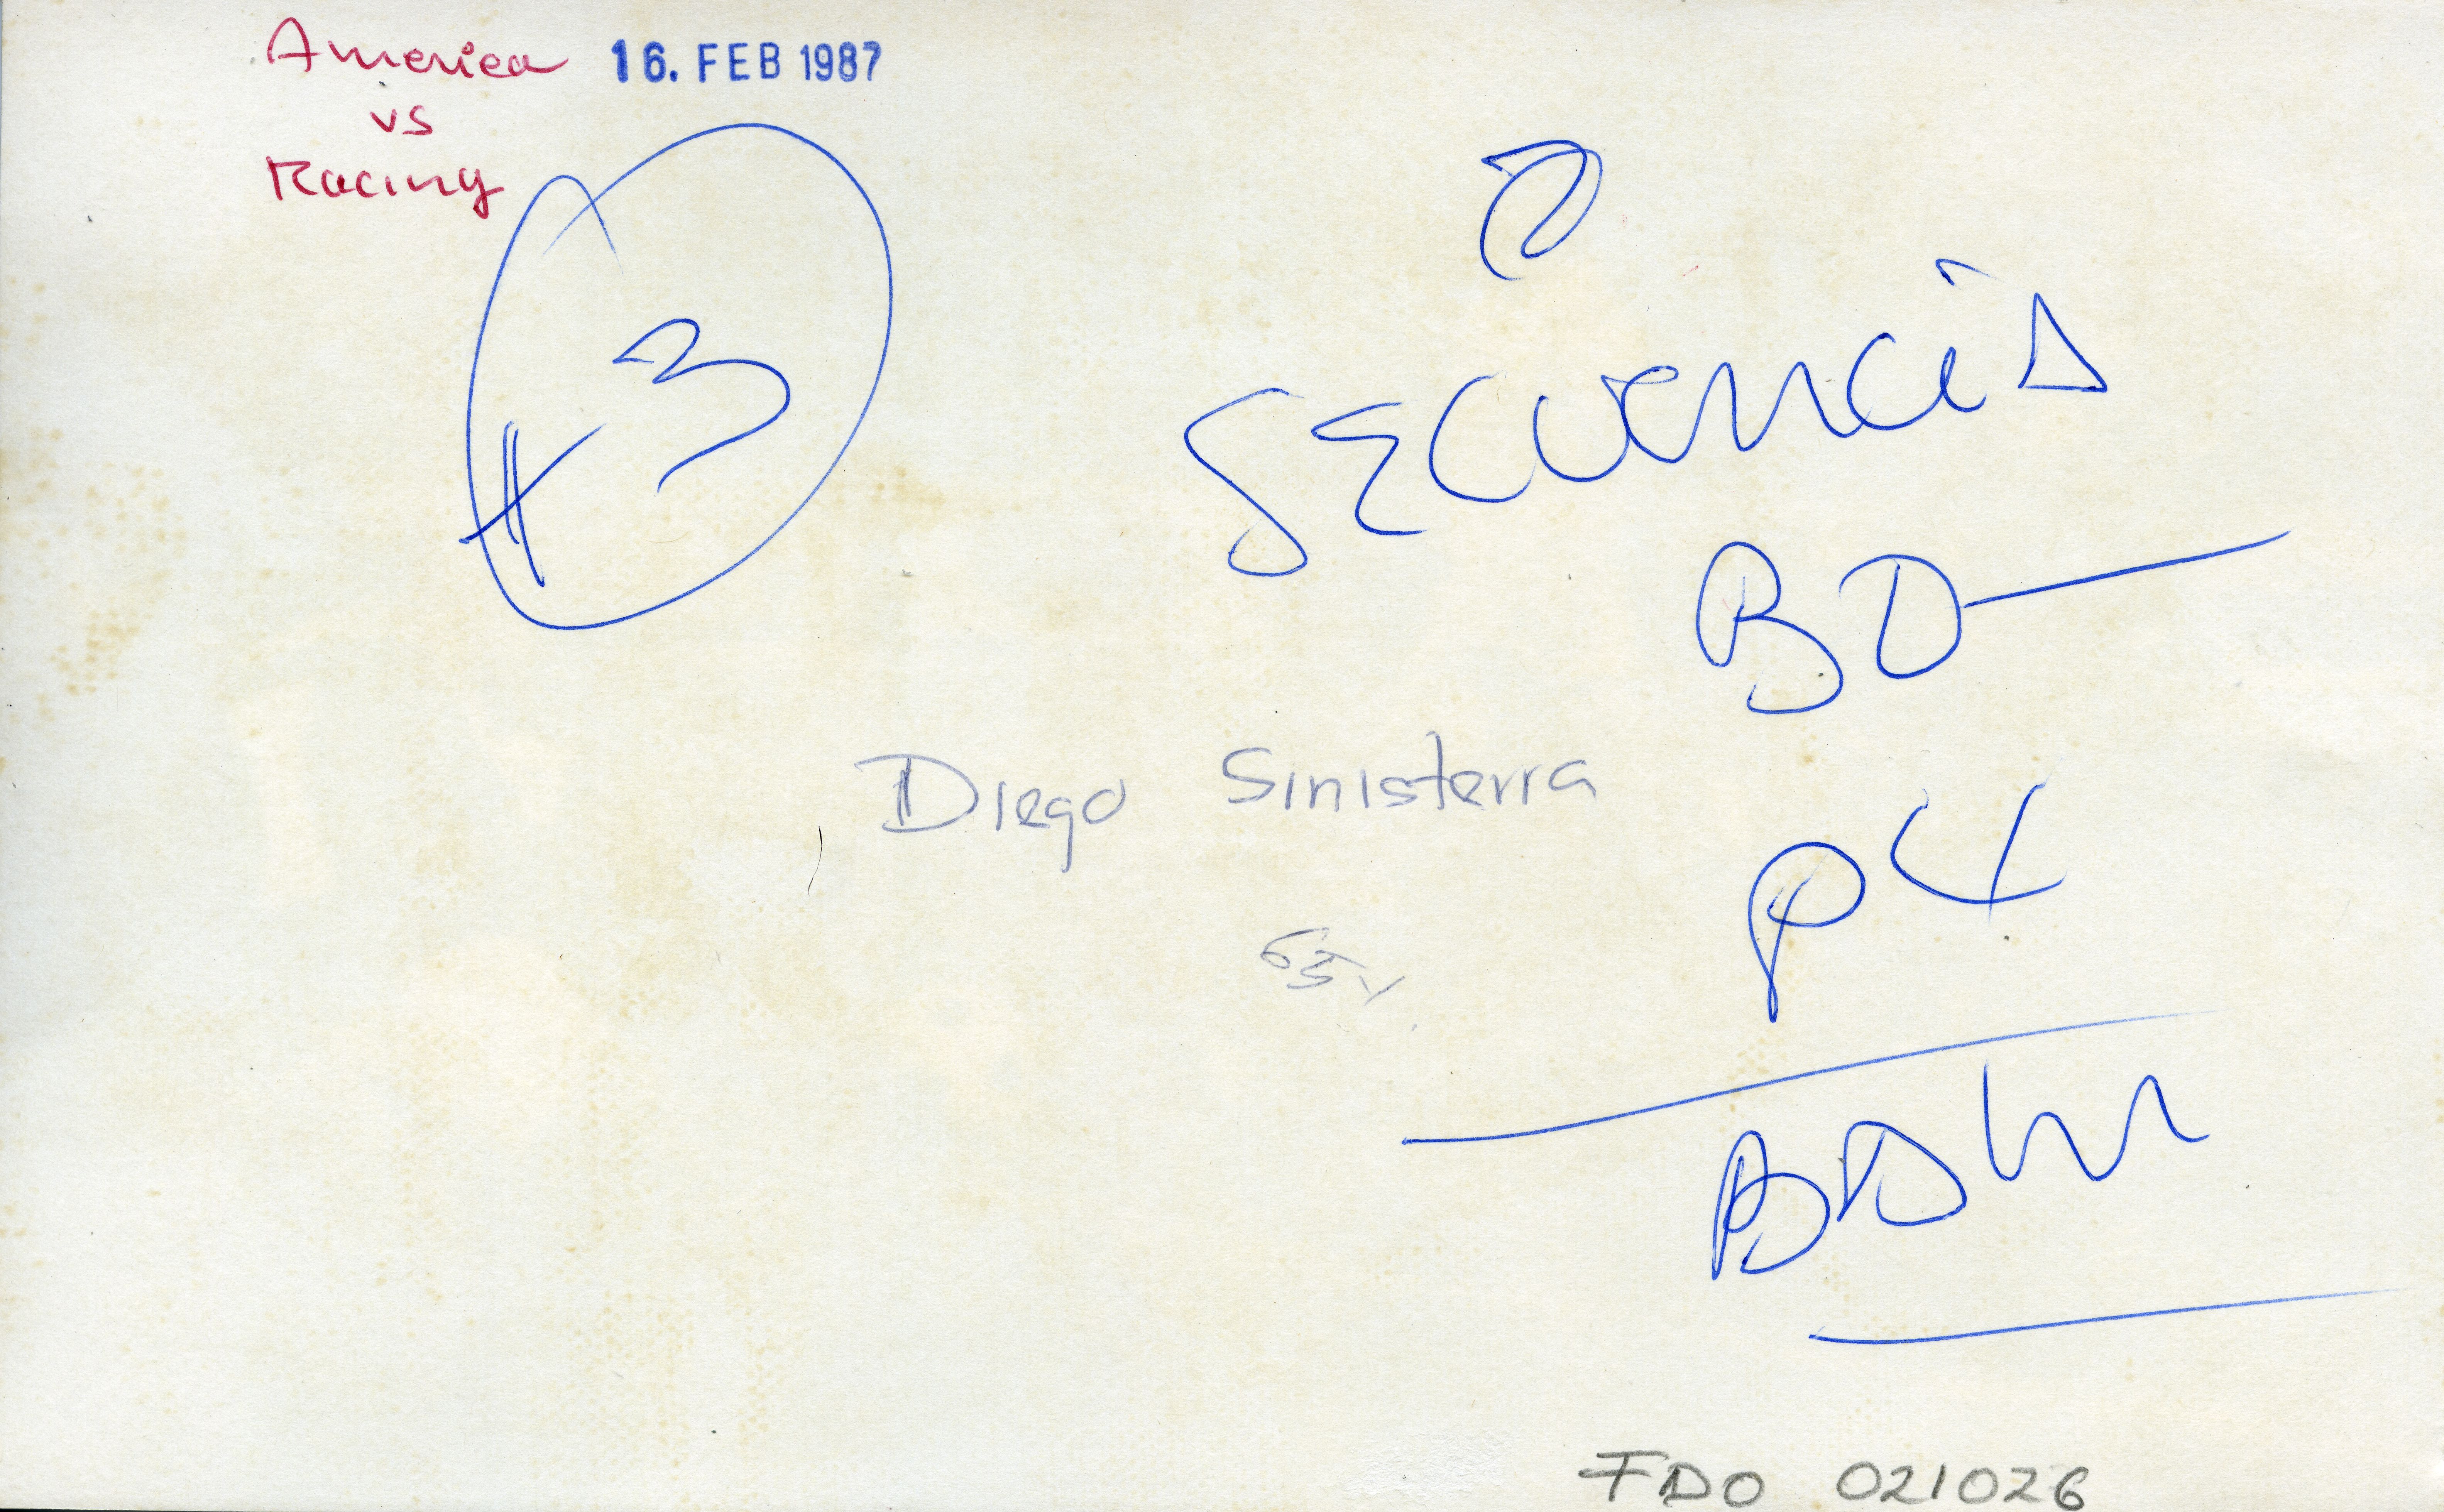 America 16. FEB 1987
vs
Racing
#3
2
Secuencia
BD
Diego Sinisterra
FDO 021026